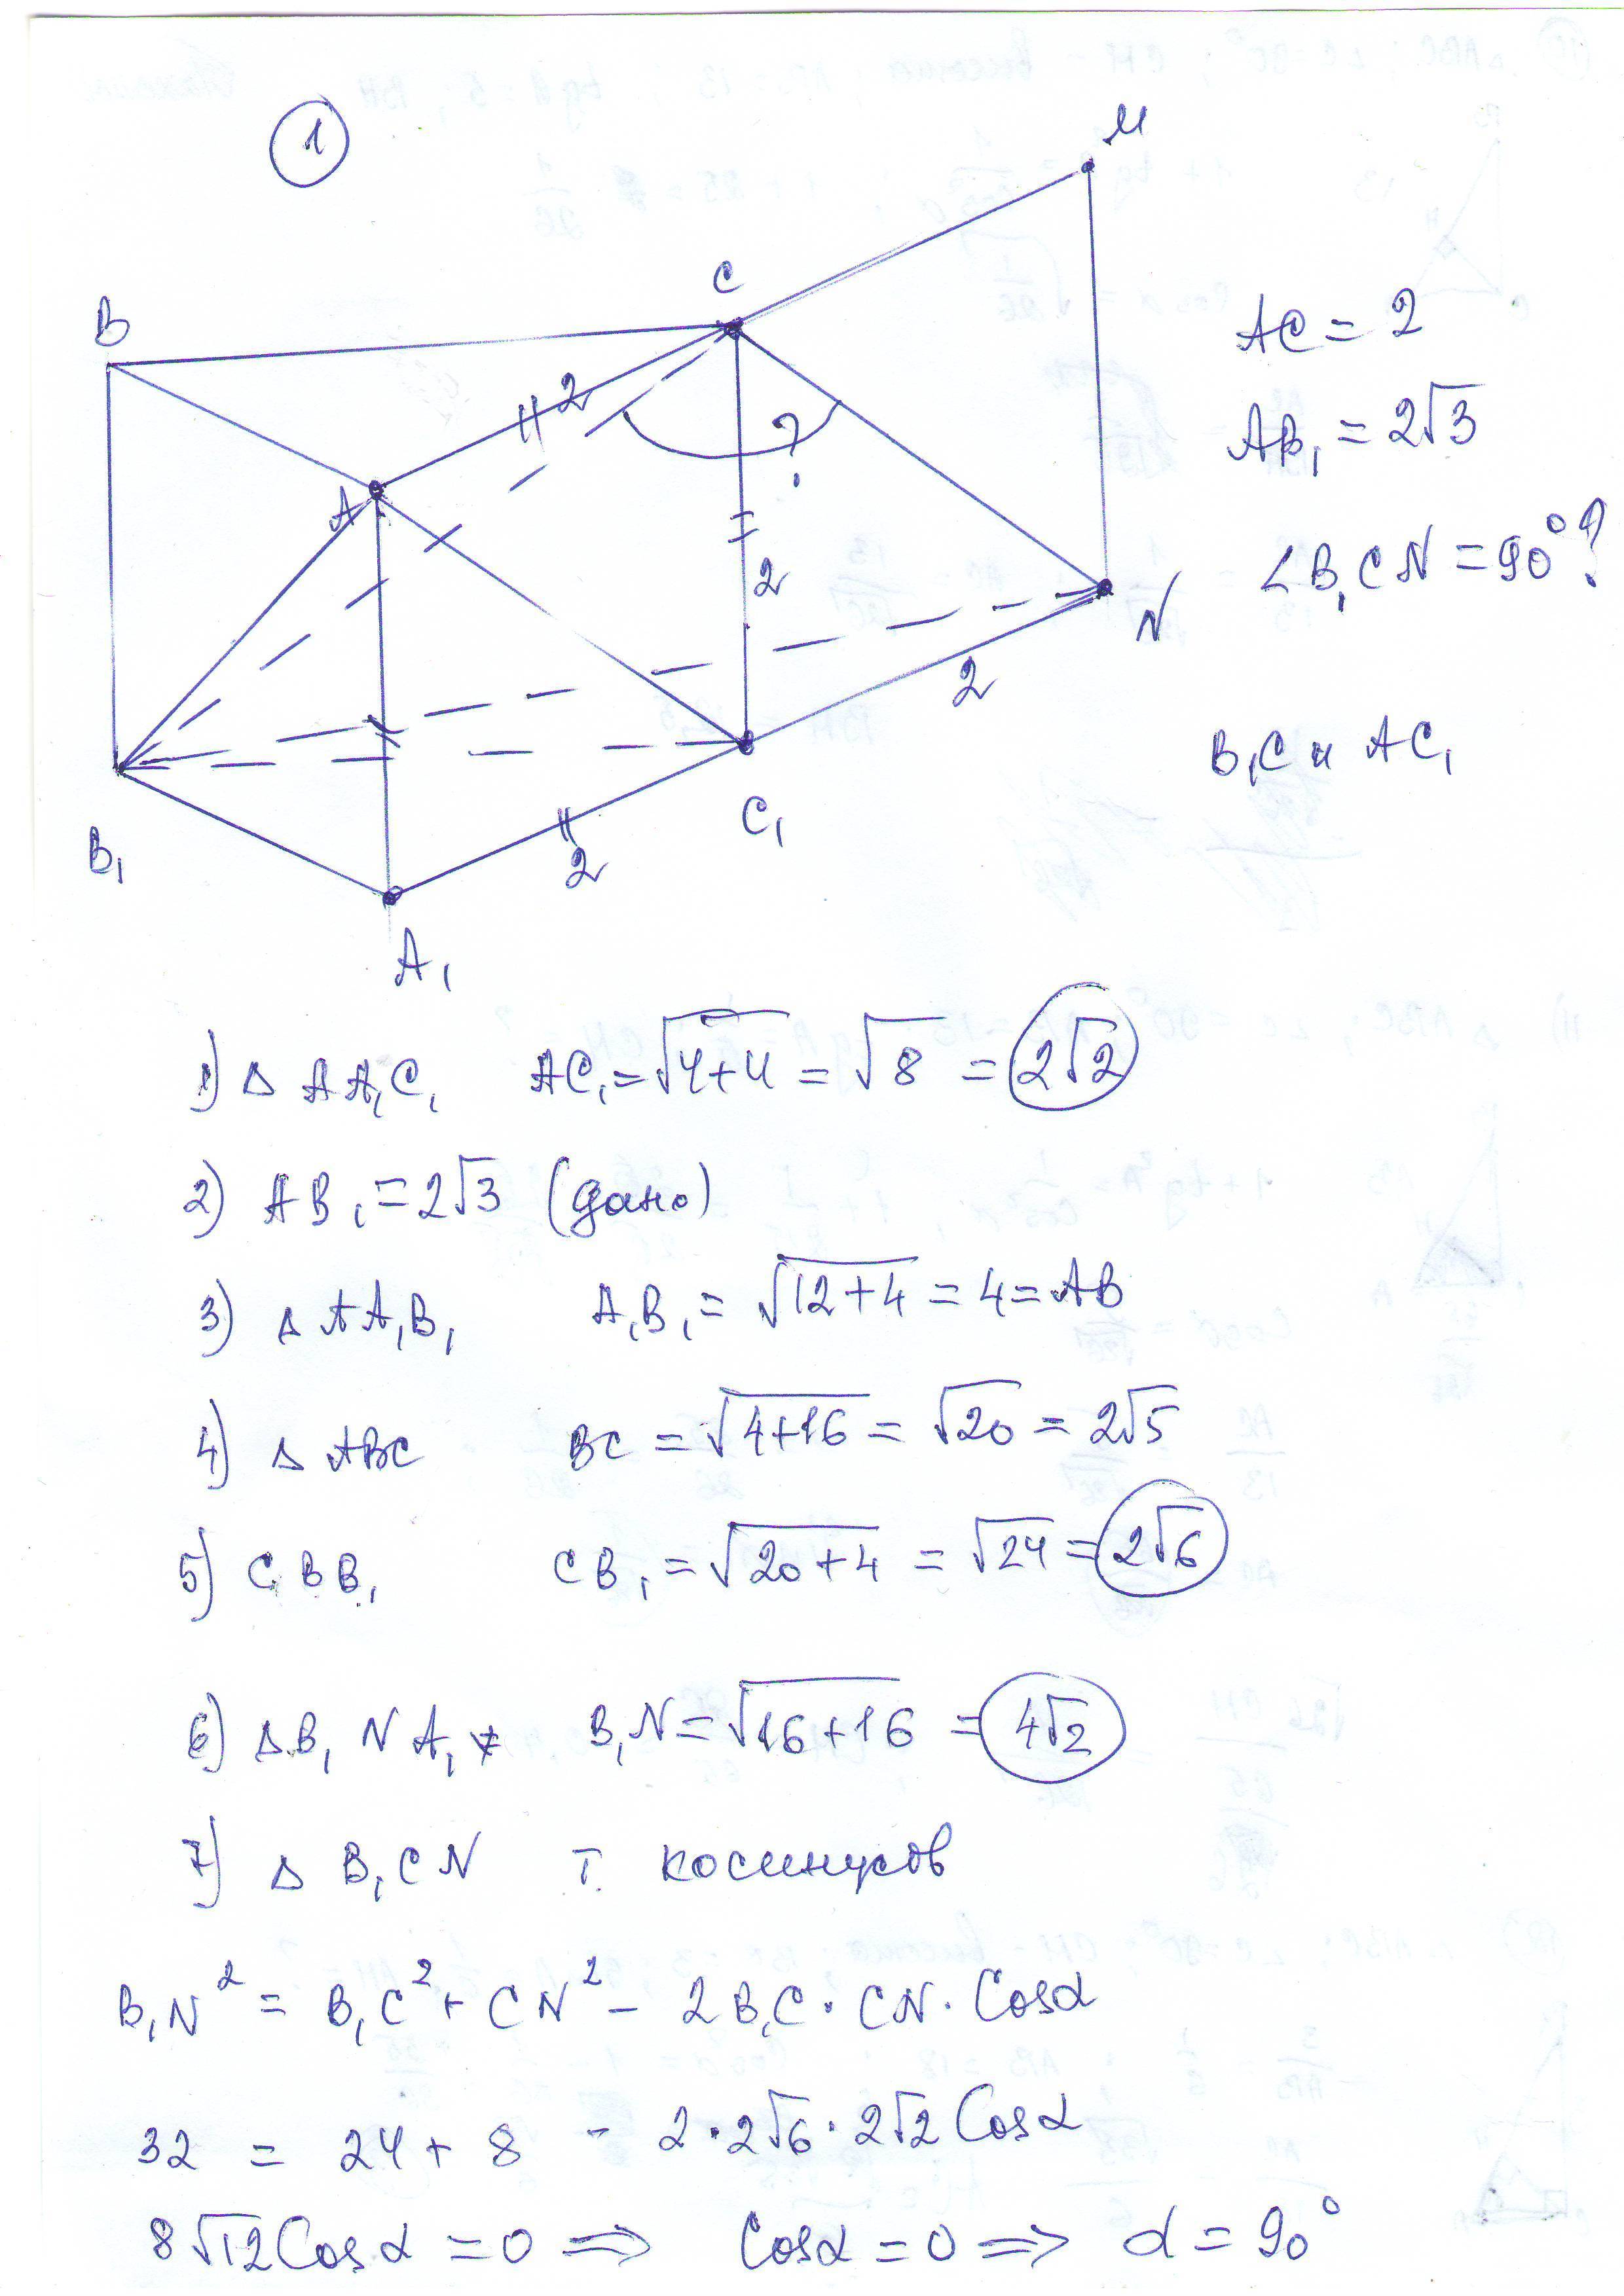 1
M
C
B
2
AC = 2
A
?
AB₁ = 2√3
2
∠B₁CN = 90°?
N
2
B₁C и AC₁
B₁
C₁
2
A₁
1) Δ AA₁C₁ AC₁ = √4+4 = √8 = 2√2
2) AB₁ = 2√3 (дано)
3) Δ AA₁B₁ A₁B₁ = √12+4 = 4 = AB
4) Δ ABC BC = √4+16 = √20 = 2√5
5) CBB₁ CB₁ = √20+4 = √24 = 2√6
6) ΔB₁NA₁ B₁N = √16+16 = 4√2
7) Δ B₁CN т. косинусов
B₁N² = B₁C² + CN² - 2B₁C · CN · Cosα
32 = 24 + 8 - 2·2√6·2√2 Cosα
8√12 Cosα = 0 => Cosα = 0 => α = 90°